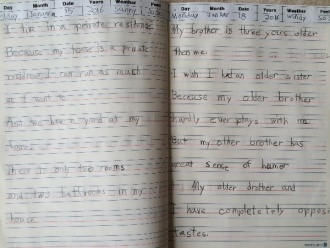 Day Month Date Years Weather
January 15 Sunny
I live in a private residence
Because my house is a private
residence, I can run as much
as I want to.
And we have a yard at my
house.
There is only two rooms
and two bathrooms in my
house.
Day Month Date Years Weather
Monday 18 windy
My brother is three years older
then me.
I wish I had an older sister
Because my older brother
hardly ever plays with me
But my older brother has
great sense of humor
My older brother and
I have completely oppose
tastes.